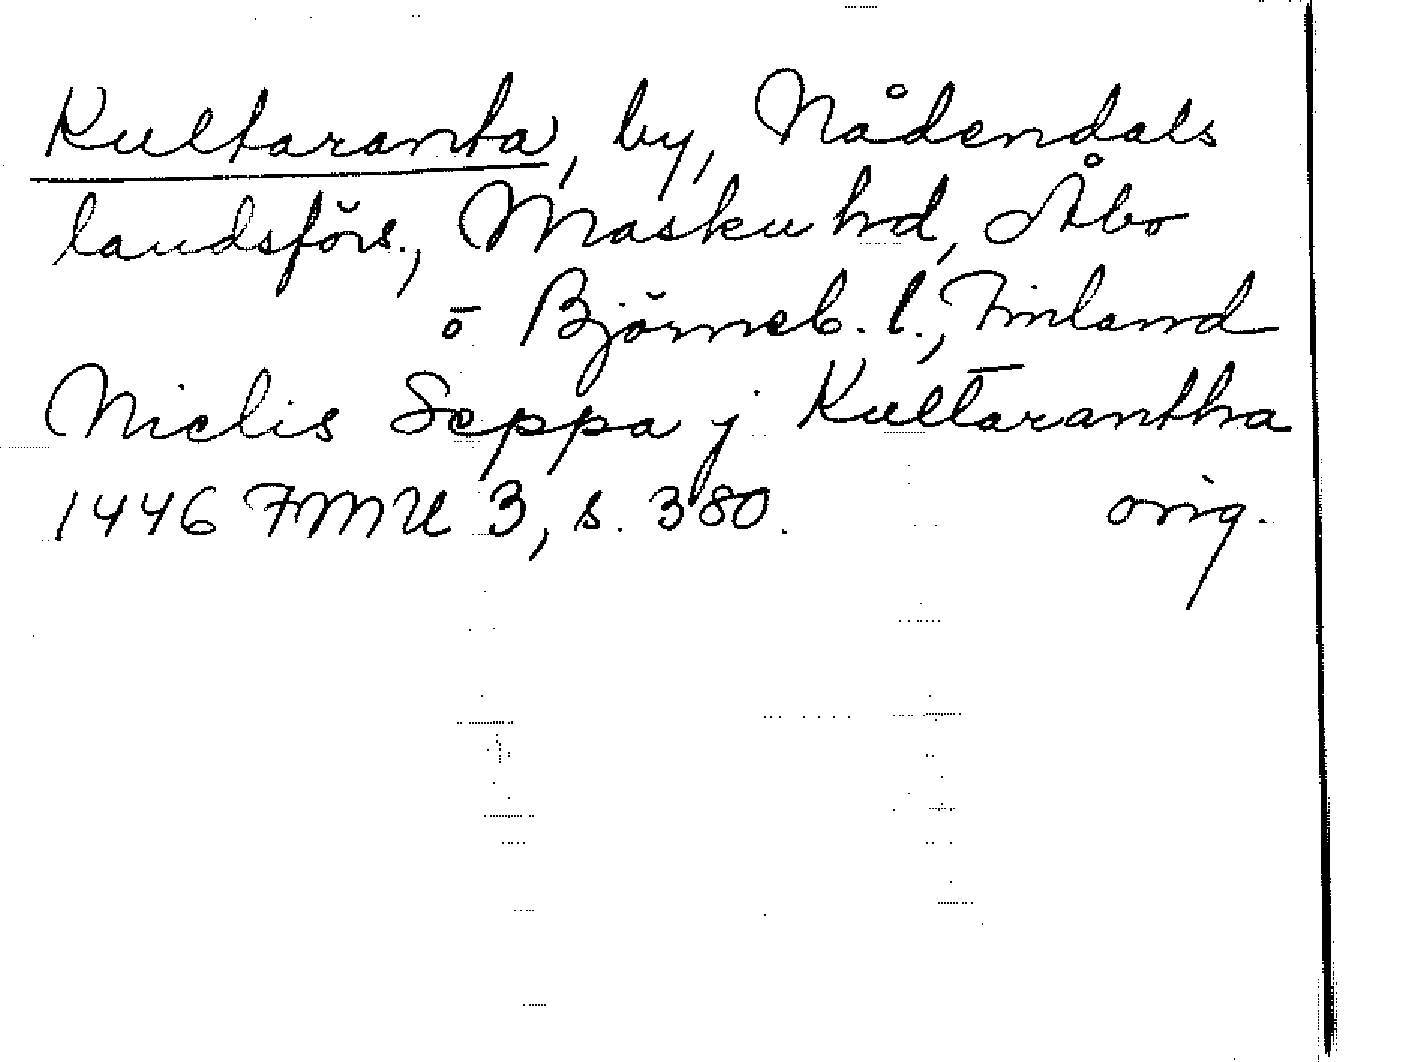 Kultaranta, by, Nådendals
landsförs., Masku hd, Åbo
o Björneb. l., Finland
Nielis Seppa j Kultarantha
1446 FMU 3, s. 380. orig.